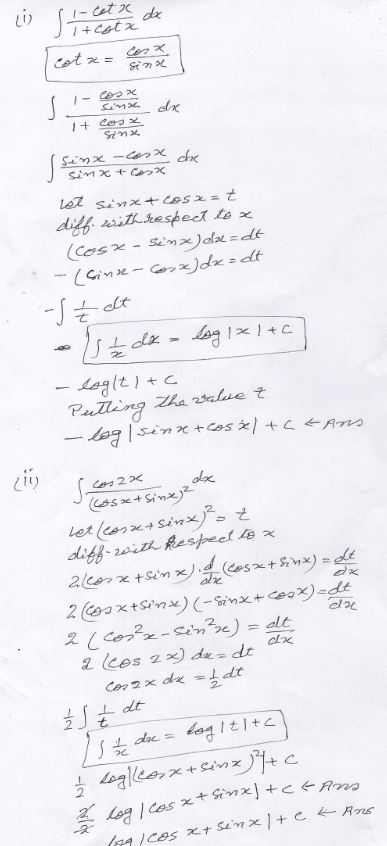 (i) ∫ (1 - cot x)/(1 + cot x) dx
cot x = cos x/sin x
∫ (1 - cos x/sin x)/(1 + cos x/sin x) dx
∫ (sin x - cos x)/(sin x + cos x) dx
Let sin x + cos x = t
diff. with respect to x
(cos x - sin x) dx = dt
- (sin x - cos x) dx = dt
- ∫ 1/t dt
∫ 1/x dx = log |x| + c
- log |t| + c
Putting the value t
- log | sin x + cos x | + c ← Ans
(ii) ∫ cos 2x/(cos x + sin x)² dx
Let (cos x + sin x)² = t
diff. with respect to x
2(cos x + sin x) · d/dx (cos x + sin x) = dt/dx
2(cos x + sin x) (-sin x + cos x) = dt/dx
2 (cos²x - sin²x) = dt/dx
2 (cos 2x) dx = dt
cos 2x dx = 1/2 dt
1/2 ∫ 1/t dt
∫ 1/x dx = log |t| + c
1/2 log |(cos x + sin x)²| + c
2/2 log | cos x + sin x | + c ← Ans
log | cos x + sin x | + c ← Ans